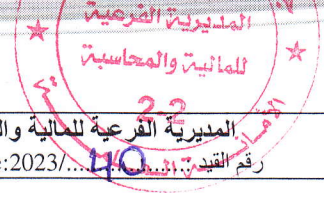 المديرية الفرعية
للمالية والمحاسبة
2-2
المديرية الفرعية للمالية وال
رقم القيد:......40....../2023: